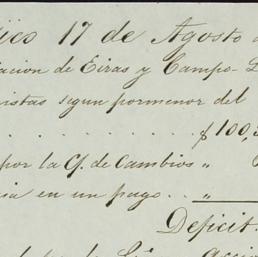 17 de Agosto
acion de Eiras y Campo-
istas segun pormenor del
. . . . . . . . . . . $ 100,
por la Cª. de Cambios "
en un pago . . "
Deficit.